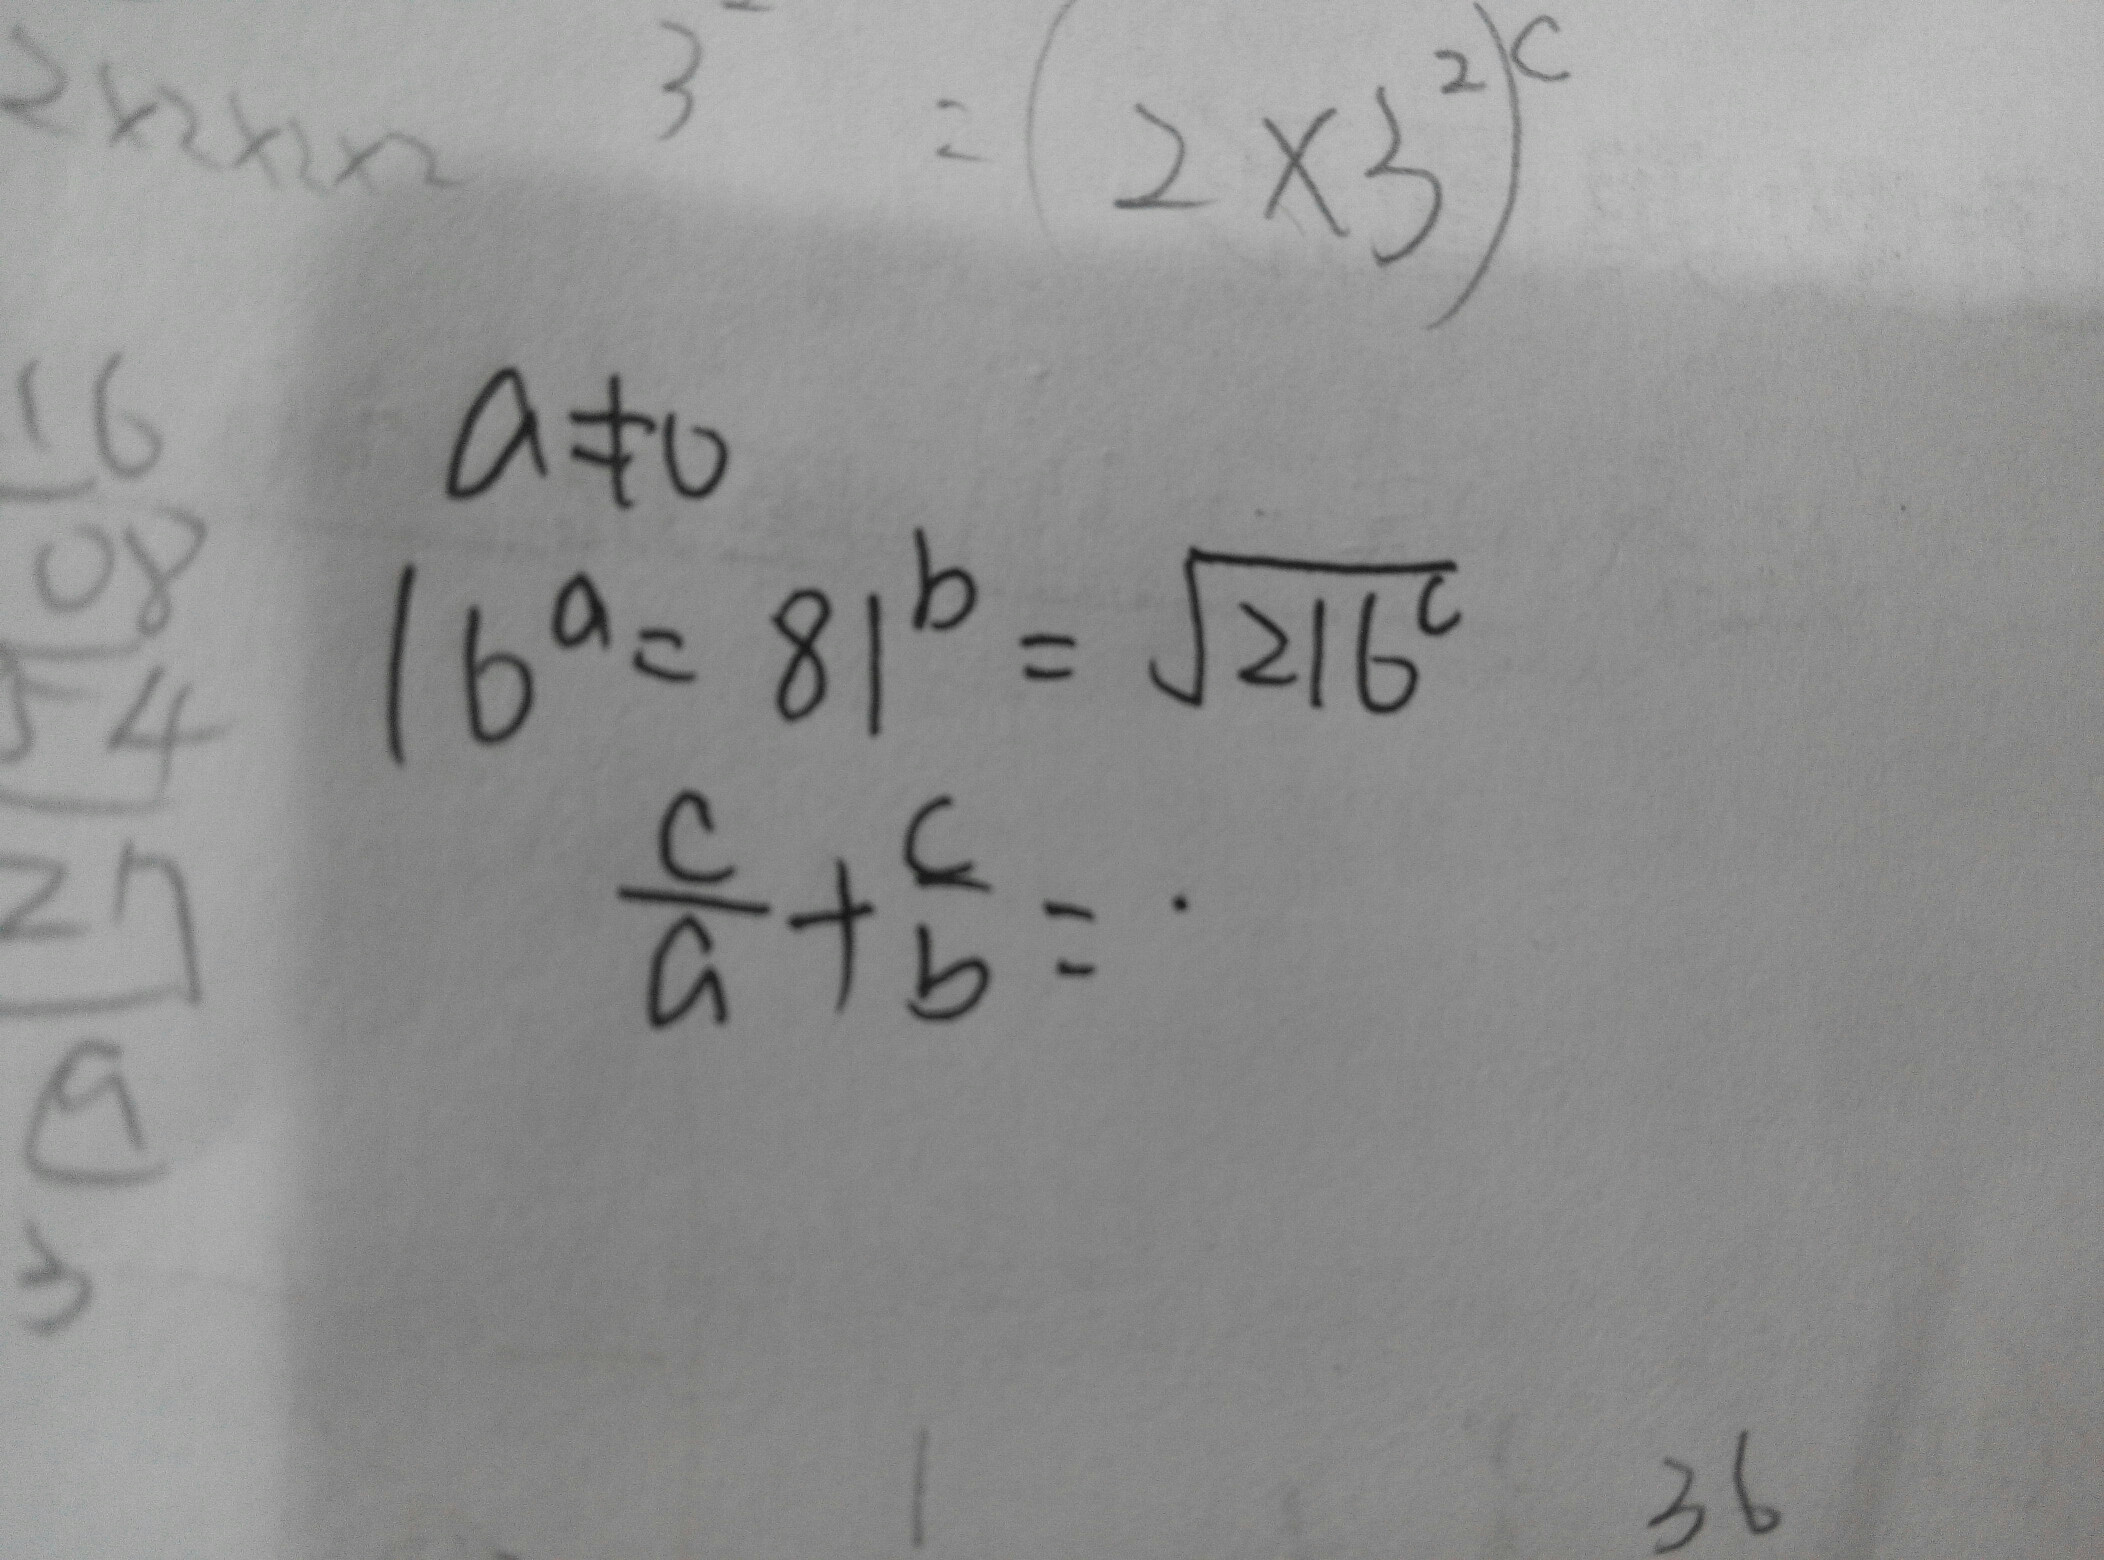 2x2x2x2
3
= (2×3²)ᶜ
16
08
54
27
9
3
a≠0
16ᵃ = 81ᵇ = √216ᶜ
c/a + c/b = ·
36